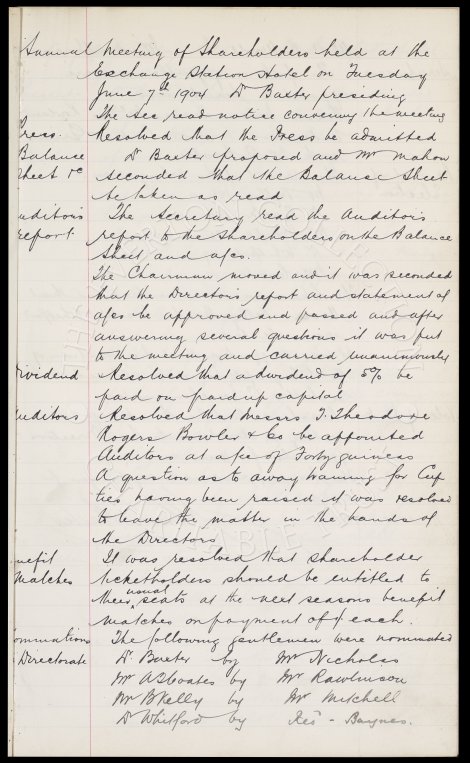 Annual Meeting of Shareholders held at the
Exchange Station Hotel on Tuesday
June 7th 1904 Dr Baxter presiding
The Sec read notice convening the meeting
Press. Resolved that the Press be admitted
Balance Dr Baxter proposed and Mr Mahon
Sheet &c seconded that the Balance Sheet
be taken as read
uditors The Secretary read the Auditor's
report. report to the Shareholders on the Balance
Sheet and a/cs.
The Chairman moved and it was seconded
that the Directors report and statement of
a/cs be approved and passed and after
answering several questions it was put
to the meeting and carried unanimously
ividend Resolved that a dividend of 5% be
paid on paid up capital
uditors Resolved that Messrs T. Theodore
Rogers Bowler & Co be appointed
Auditors at a fee of Forty guineas
A question as to away training for Cup
ties having been raised it was resolved
to leave the matter in the hands of
the Directors
nefit It was resolved that shareholder
Matches ticketholders should be entitled to
their usual seats at the next seasons benefit
matches on payment of each.
ominations The following gentlemen were nominated
Directorate Dr Baxter by Mr Nicholas
Mr A Coates by Mr Rawlinson
Mr B Kelly by Mr Mitchell
Dr Whitford by Baynes.